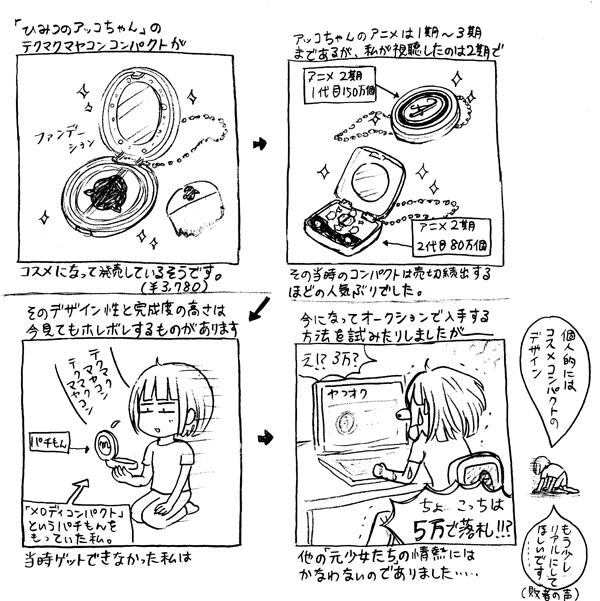 「ひみつのアッコちゃん」の
テクマクマヤコンコンパクトが
ファンデー
ション
コスメになって発売しているそうです。
(¥3,780)
アッコちゃんのアニメは1期〜3期
まであるが、私が視聴したのは2期で
アニメ2期
1代目150万個
アニメ2期
2代目80万個
その当時のコンパクトは売切続出する
ほどの人気ぶりでした。
そのデザイン性と完成度の高さは
今見てもホレボレするものがあります
テクマク
マヤコン
テクマク
マヤコン
パチもん
m
「メロディコンパクト」
というパチもんを
もっていた私。
当時ゲットできなかった私は
今になってオークションで入手する
方法を試みたりしましたが──
え!?3万?
ヤフオク
ちょ…こっちは
5万で落札!!?
他の「元少女たち」の情熱には
かなわないのでありました‥‥‥
個人的には
コスメコンパクトの
デザイン
もう少し
リアルにして
ほしいです
(敗者の声)